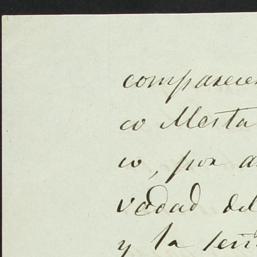 comparecie
co Mesta
co, por a
vedad del
y la señ